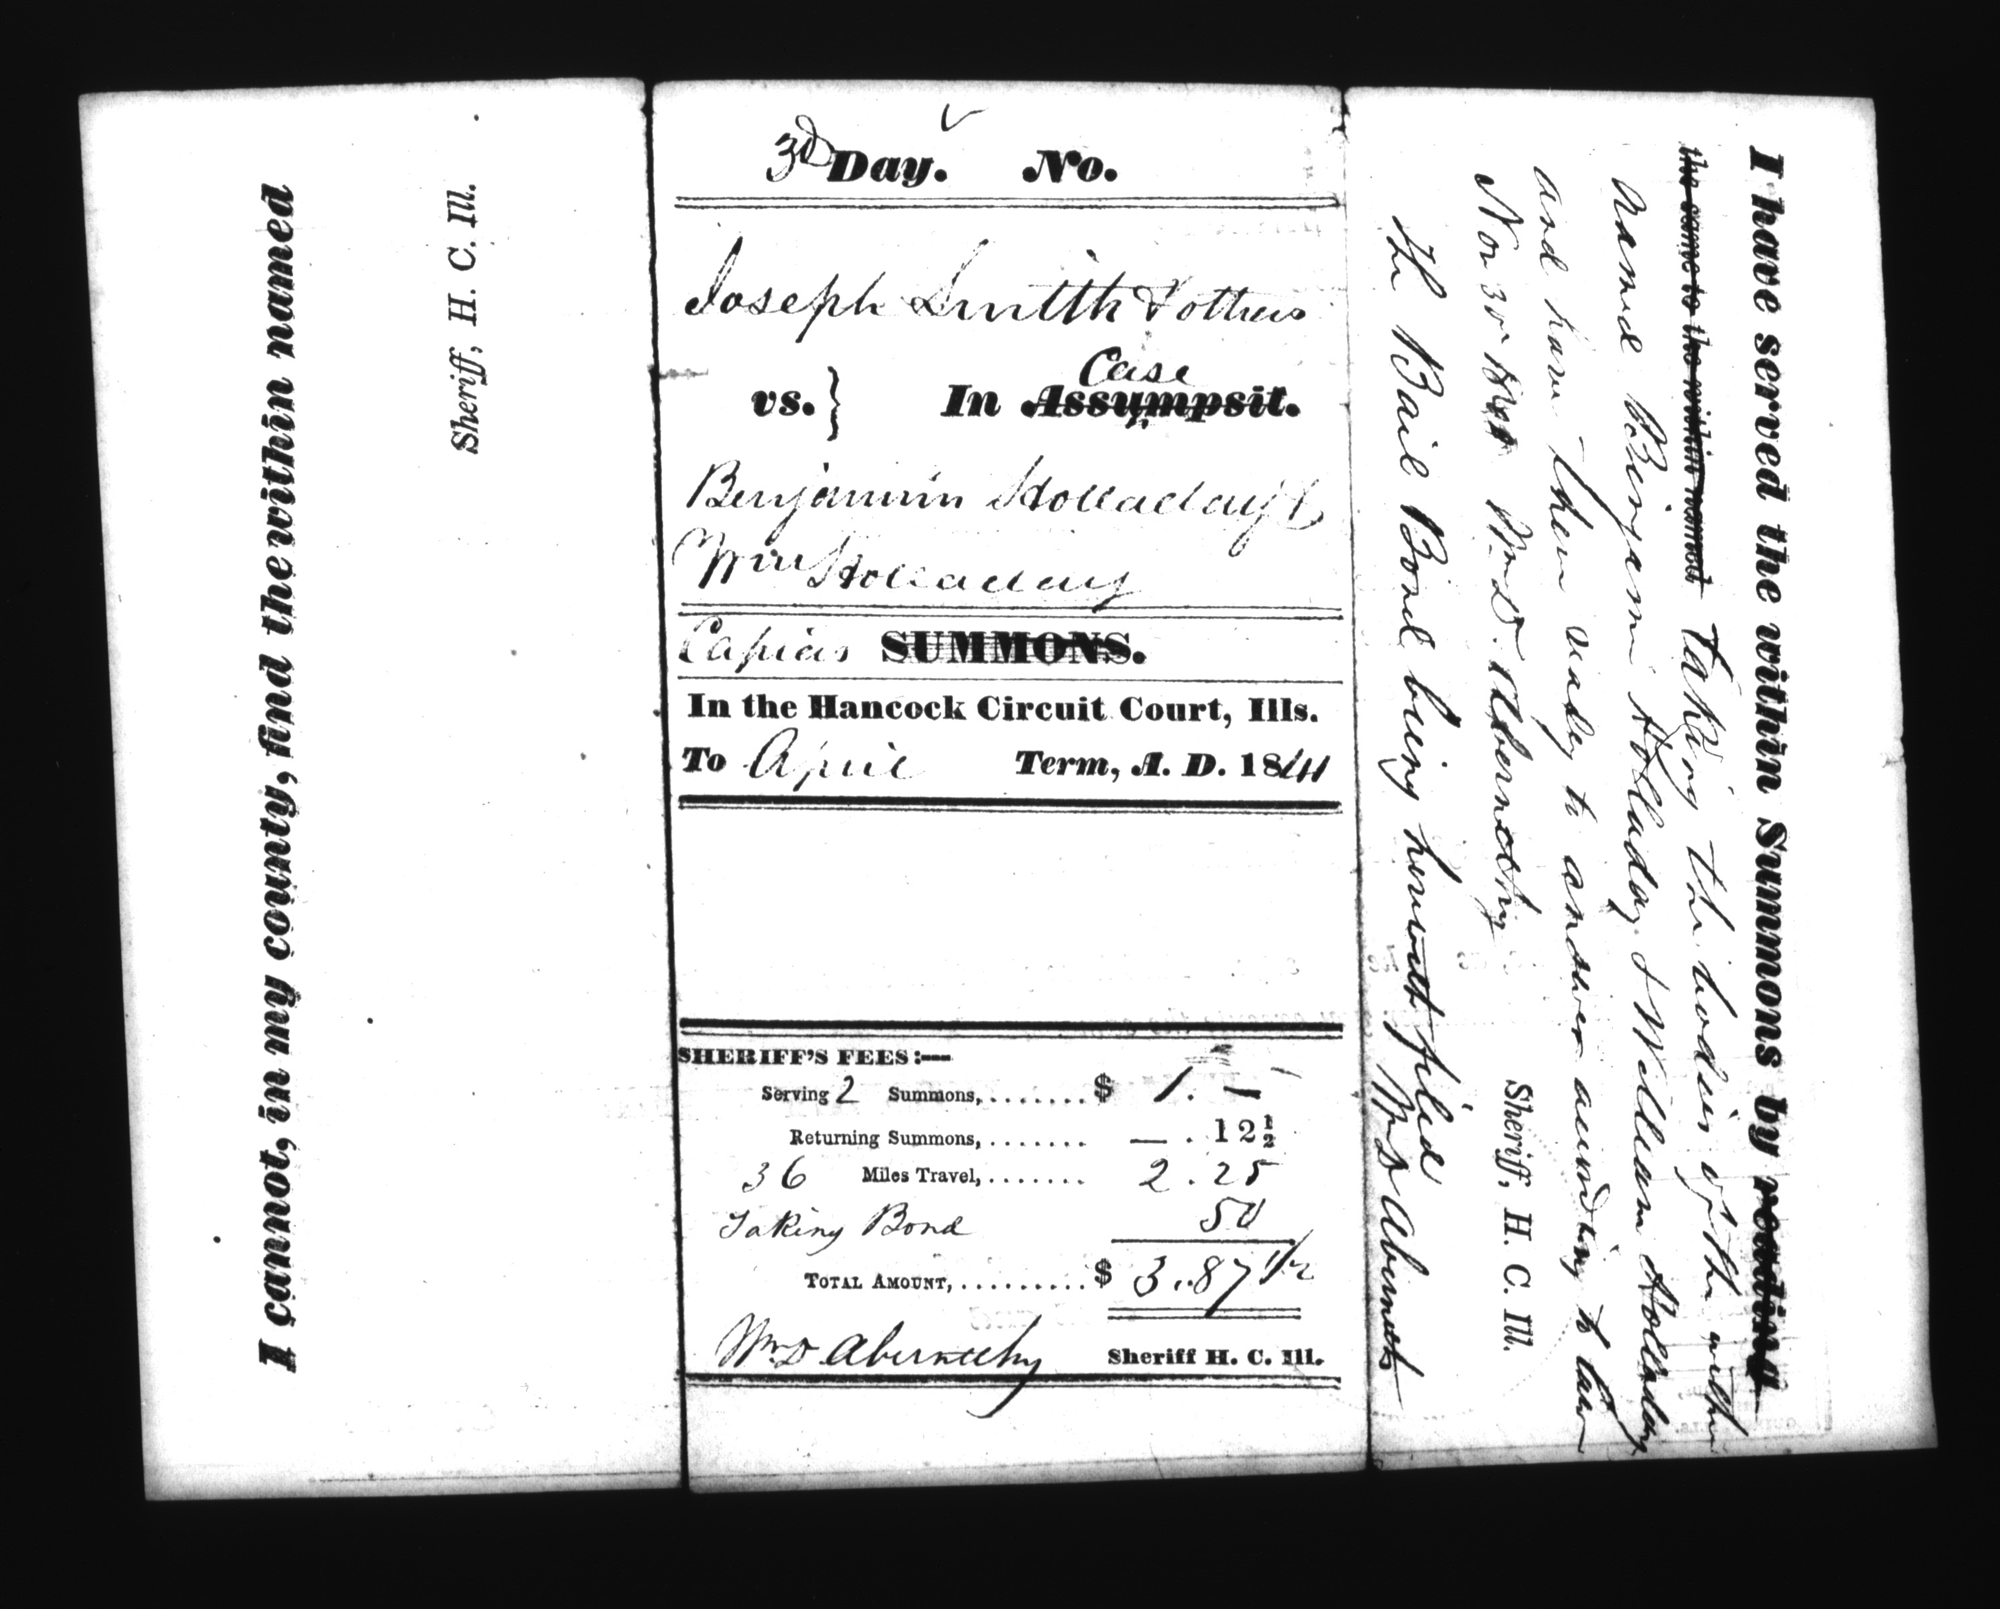 I cannot, in my county, find the within named
Sheriff, H. C. Ill.
3d Day. No.
Joseph Smith & others
vs. } In Assumpsit. Case
Benjamin Holladay &
Wm Holladay
Capias SUMMONS.
In the Hancock Circuit Court, Ills.
To April Term, A. D. 1841
SHERIFF'S FEES:—
Serving 2 Summons,........$ 1.
Returning Summons,....... — . 12½
36 Miles Travel,....... 2.25
Taking Bond 50
TOTAL AMOUNT,..........$ 3.87 1/2
Wm D. Abernethy Sheriff H. C. Ill.
I have served the within Summons by reading
the same to the within named Taking the bodies of the within
named Benjamin Holladay & William Holladay
and have them ready to answer according to law
Nov 30 Wm D. Abernethy Sheriff, H. C. Ill.
The Bail Bond being herewith filed Wm D Abernethy